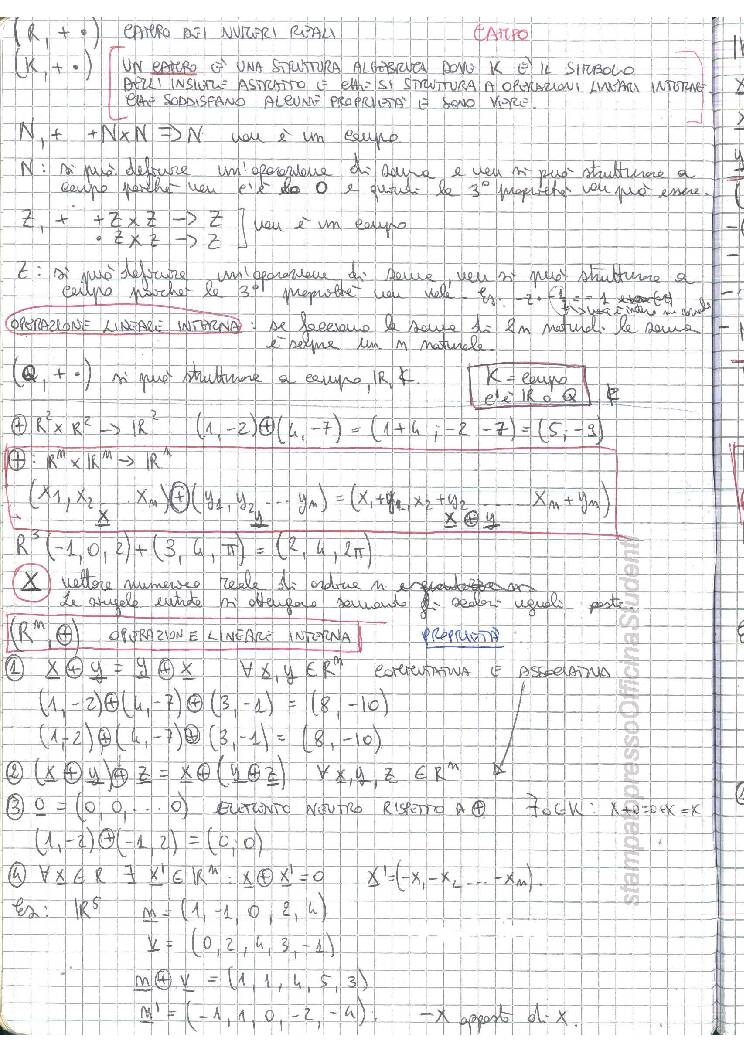 (R, + •) CAMPO DEI NUMERI REALI CAMPO
(K, + •) UN CAMPO È UNA STRUTTURA ALGEBRICA DOVE K È IL SIMBOLO
DELL'INSIEME ASTRATTO E CHE SI STRUTTURA A OPERAZIONI LINEARI INTERNE
CHE SODDISFANO ALCUNE PROPRIETÀ E SONO VERE.
N, + +N×N ⇒ N non è un campo
N: si può definire un'operazione di somma e non si può strutturare a
campo perché non c'è lo 0 e quindi la 3° proprietà non può essere.
Z, + +Z×Z → Z
• Z×Z → Z non è un campo
Z: si può definire un'operazione di somma, non si può strutturare a
campo perché la 3° proprietà non vale. Es:
OPERAZIONE LINEARE INTERNA: se facciamo la somma di 2 n naturali la somma
è sempre un n naturale.
(Q, + •) si può strutturare a campo, R, ₵.
K = campo
c'è R o Q ₵
⊕ R² × R² → R² (1, -2)⊕(4, -7) = (1+4 ; -2 -7) = (5, -9)
⊕: Rⁿ × Rⁿ → Rⁿ
(x₁, x₂ ... xₙ)⊕(y₁, y₂ ... yₙ) = (x₁+y₁, x₂+y₂ ... xₙ+yₙ)
x y x ⊕ y
R³ (-1, 0, 2)+(3, 4, π) = (2, 4, 2π)
x vettore numerico reale di ordine n
Le singole entrate si ottengono sommando gli scalari uguali posto.
(Rⁿ, ⊕) OPERAZIONE LINEARE INTERNA PROPRIETÀ
① x ⊕ y = y ⊕ x ∀ x, y ∈ Rⁿ COMMUTATIVA E ASSOCIATIVA
(1, -2)⊕(4, -7)⊕(3, -1) = (8, -10)
(1-2)⊕(4, -7)⊕(3, -1) = (8, -10)
② (x ⊕ y)⊕ z = x ⊕ (y ⊕ z) ∀ x, y, z ∈ Rⁿ
③ 0 = (0, 0, ... 0) ELEMENTO NEUTRO RISPETTO A ⊕ ∃ 0 ∈ K: x+0=0+x=x
(1, -2)⊕(-1, 2) = (0, 0)
④ ∀ x ∈ R ∃ x' ∈ Rⁿ: x ⊕ x' = 0 x' = (-x₁ -x₂ ... -xₙ).
Es: R⁵ m = (1, -1, 0, 2, 4)
v = (0, 2, 4, 3, -1)
m ⊕ v = (1, 1, 4, 5, 3)
m' = (-1, 1, 0, -2, -4). -x opposto di x.
stampato presso Officina Studenti